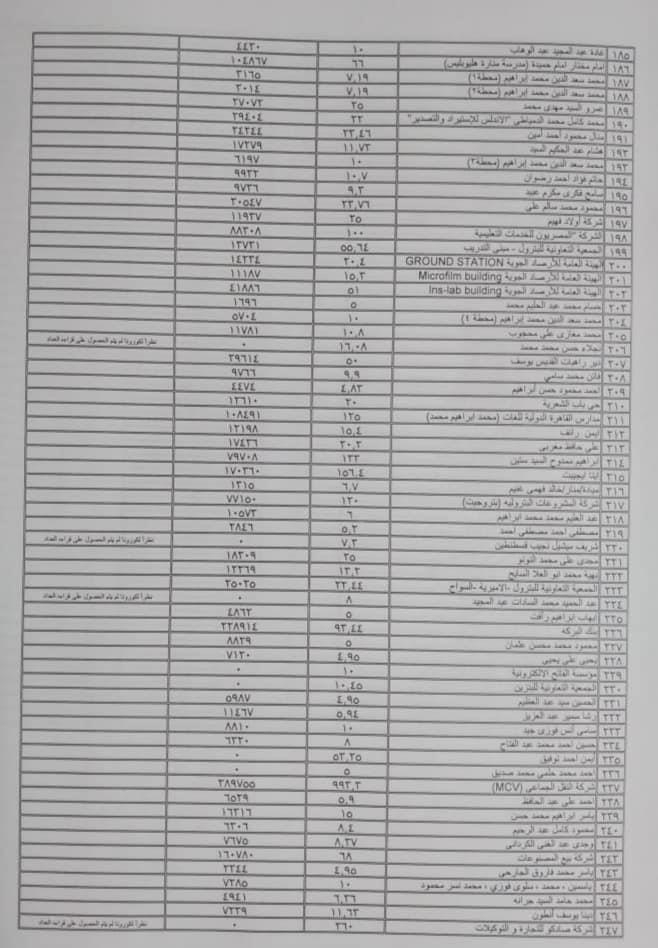 ١٨٥ غادة عبد المجيد عبد الوهاب ١٠ ٤٤٣٠
١٨٦ امام مختار امام حميدة (مدرسة منارة هليوبليس) ٦٦ ١٠٤٨٦٧
١٨٧ محمد سعد الدين محمد إبراهيم (محطة١) ٧,١٩ ٣١٦٥
١٨٨ محمد سعد الدين محمد إبراهيم (محطة٢) ٧,١٩ ٣٠١٤
١٨٩ عمرو السيد مهدى محمد ٢٥ ٢٧٠٧٢
١٩٠ محمد كامل محمد الدمياطي "الاندلس للإستيراد والتصدير" ٢٢ ٢٩٤٠٤
١٩١ منال محمود أحمد أمين ٢٣,٤٦ ٢٤٢٤٤
١٩٢ هشام عبد الحكيم السيد ١١,٧٣ ١٧٢٧٩
١٩٣ محمد سعد الدين محمد إبراهيم (محطة٣) ١٠ ٦١٩٧
١٩٤ حاتم فؤاد احمد رضوان ١٠,٧ ٩٩٢٢
١٩٥ سامح فكرى مكرم عبيد ٩,٣ ٩٧٣٦
١٩٦ محمود محمد سالم على ٢٣,٧٦ ٣٠٥٤٧
١٩٧ شركة أولاد فهيم ٢٥ ١١٩٣٧
١٩٨ الشركة "المصريون للخدمات التعليمية ١٠٠ ٨٨٣٠٨
١٩٩ الجمعية التعاونية للبترول - مبنى التدريب ٥٥,٦٤ ١٣٧٣١
٢٠٠ الهيئة العامة للأرصاد الجوية GROUND STATION ٢٠,٤ ١٤٢٣٤
٢٠١ الهيئة العامة للأرصاد الجوية Microfilm building ١٥,٣ ١١١٨٧
٢٠٢ الهيئة العامة للأرصاد الجوية Ins-lab building ٥١ ٤١٨٨٦
٢٠٣ حسام محمد عبد الحليم محمد ٥ ١٦٩٦
٢٠٤ محمد سعد الدين محمد إبراهيم (محطة ٤) ١٠ ٥٧٠٤
٢٠٥ محمد مغازى على محجوب ١٠,٨ ١١٧٨١
٢٠٦ نجلاء حسن محمد محمد ١٦,٠٨ ٠ نظرا لكورونا لم يتم الحصول على قراءه العداد
٢٠٧ دير راهبات القديس يوسف ٥٠ ٣٩٦١٤
٢٠٨ فاتن محمد سامي ٩,٩ ٩٧٦٦
٢٠٩ أحمد محمود حسن ابراهيم ٤,٨٣ ٤٤٧٤
٢١٠ حى باب الشعرية ٢٠ ١٣٦١٠
٢١١ مدارس القاهرة الدولية للغات (محمد ابراهيم محمد) ١٢٥ ١٠٨٤٩١
٢١٢ ايمن رائف ١٥,٤ ١٢١٩٨
٢١٣ على حافظ مغربى ٢٠,٢ ١٧٤٣٦
٢١٤ ابراهيم ممدوح السيد ستين ١٣٣ ٧٩٧٠٨
٢١٥ ايتا ايجيبت ١٥٦,٤ ١٧٠٣٦٠
٢١٦ ميادة/منار/خالد فهمى غنيم ٦,٧ ١٣١٥
٢١٧ شركة المشروعات البترولية (بتروجيت) ١٢٠ ٧٧١٥٠
٢١٨ عبد العليم محمد محمد ابراهيم ٦ ١٠٥٧٣
٢١٩ مصطفى احمد مصطفى احمد ٥,٢ ٢٨٤٦
٢٢٠ شريف ميشيل نجيب قسطنطين ٧,٣ ٠ نظرا لكورونا لم يتم الحصول على قراءه العداد
٢٢١ مجدى على محمد التونو ٢٥ ١٨٣٠٩
٢٢٢ نهية محمد ابو العلا السايح ١٣,٢ ١٢٣٦٩
٢٢٣ الجمعية التعاونية للبترول -الاميرية -السواح ٢٢,٤٤ ٢٥٠٢٥
٢٢٤ عبد الحميد محمد السادات عبد المجيد ٨ ٠ نظرا لكورونا لم يتم الحصول على قراءه العداد
٢٢٥ ايهاب ابراهيم رأفت ٥ ٤٨٦٢
٢٢٦ بنك البركه ٩٣,٤٤ ٢٢٨٩١٤
٢٢٧ محمود محمد محسن عثمان ٥ ٨٨٢٩
٢٢٨ يحيى على يحيى ٤,٩٥ ٧١٢٠
٢٢٩ مؤسسة الفاتح الالكترونية ١٠ ٠
٢٣٠ الجمعية التعاونية للبنزين ١٠,٤٥ ٠
٢٣١ الحسين سيد عبد العظيم ٤,٩٥ ٥٩٨٧
٢٣٢ رشا سمير عبد العزيز ٥,٩٤ ١١٤٦٧
٢٣٣ سامى أنس فوزى جيد ١٠ ٨٨١٠
٢٣٤ حسين احمد محمد عبد الفتاح ٨ ٦٣٢٠
٢٣٥ أيمن احمد توفيق ٥٣,٢٥ ٠
٢٣٦ احمد محمد حلمى محمد صديق ٥ ٠
٢٣٧ شركة النقل الجماعى (MCV) ٩٩٣,٣ ٣٨٩٧٥٥
٢٣٨ احمد على عبد الحافظ ٥,٩ ٦٥٢٩
٢٣٩ ياسر ابراهيم محمد حسن ١٥ ١٦٣١٦
٢٤٠ محمود كامل عبد الرحيم ٨,٤ ٦٣٠٦
٢٤١ وجدى عبد الغنى الكردانى ٨,٢٧ ٧٦٧٥
٢٤٢ شركة بيع المصنوعات ٦٨ ١٦٠٧٨٠
٢٤٣ ياسر محمد فاروق الجارحى ٤,٩٥ ٢٣٤٤
٢٤٤ ياسمين ، محمد ، سلوى فوزي ، محمد نسر محمود ١٠ ٧٢٨٥
٢٤٥ محمد حامد السيد جرانه ٦,٣٦ ٤٩٤١
٢٤٦ دينا يوسف أنطون ١١,٦٣ ٧٢٣٩
٢٤٧ شركة صادكو للتجارة و التوكيلات ٣٦٠ ٠ نظرا لكورونا لم يتم الحصول على قراءه العداد